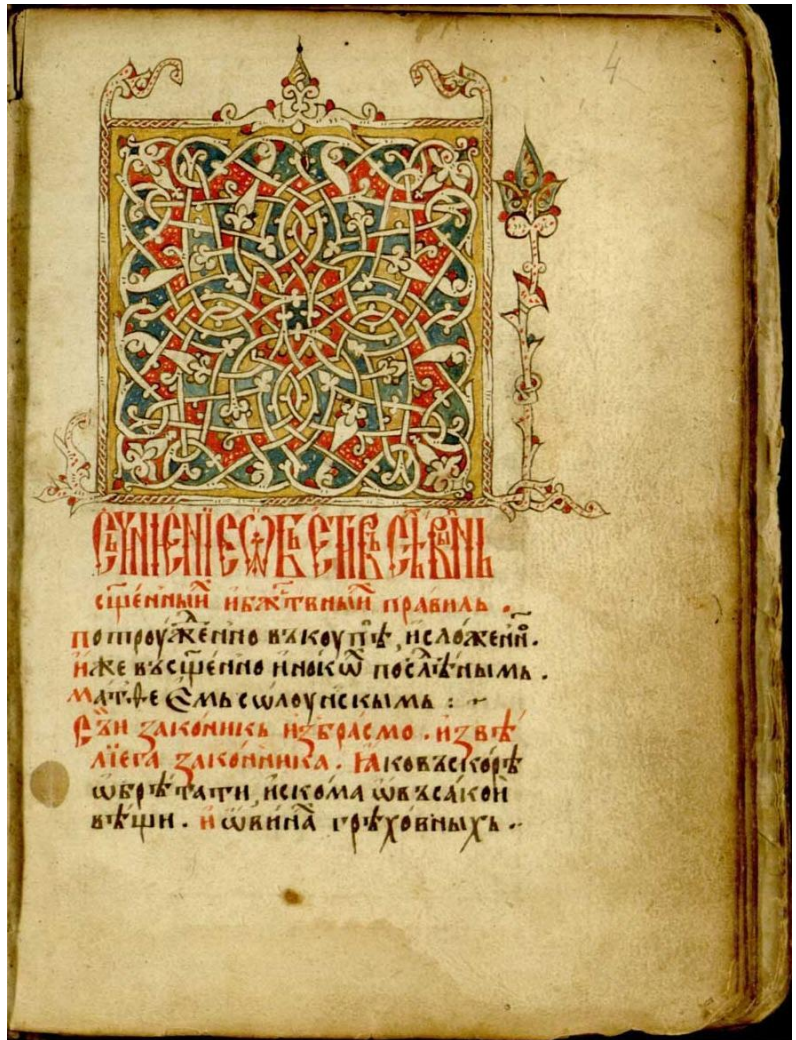 4
съчинениѥ ѡбъѥтиѥ въсѣхь винь
сщ҃е́нныⷯ и бжⷭ҇твныⷯ правиль ·
потроуже́нно въкоу́пѣ, и сложе́ннѡ ·
и́же въ сщ҃е́нно и́нокѡⷯ послѣ́днымь ·
Матѳе ѥмь сѡлоунскымь :~
Съ́и зако́никь избра́смо · из ве́
лїега зако́нника · Ꙗко въско́рѣ
ѡбрѣ́тати, и́скома ѡ въса́кои
ве́щи · и ѡ вина̀ грѣхо́вныхь ··